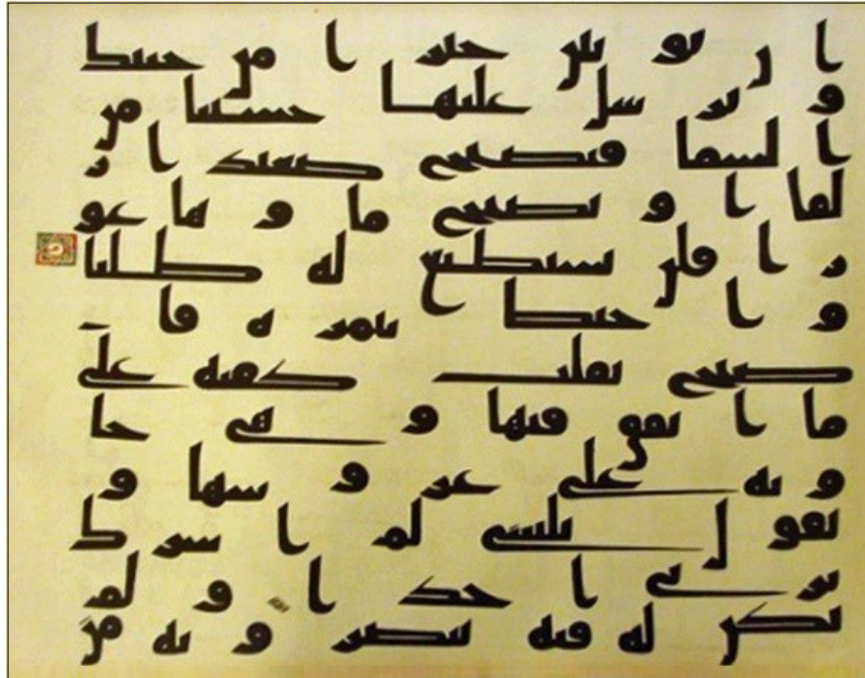 ا ن يو تين خير ا من جنتك
و ير سل عليها حسبنا من
ا لسما فتصبح صعيد ا ز
لقا ا و يصبح ما و ها غو
ر ا فلن تستطيع له طلبا
و ا حيط بثمر ه فا
صبح يقلب كفيه على
ما ا نفق فيها و هي خا
و ية على عر و شها و
يقو ل يليتني لم ا شر ك
بر بي ا حد ا و لم
تكن له فئة ينصر و نه من